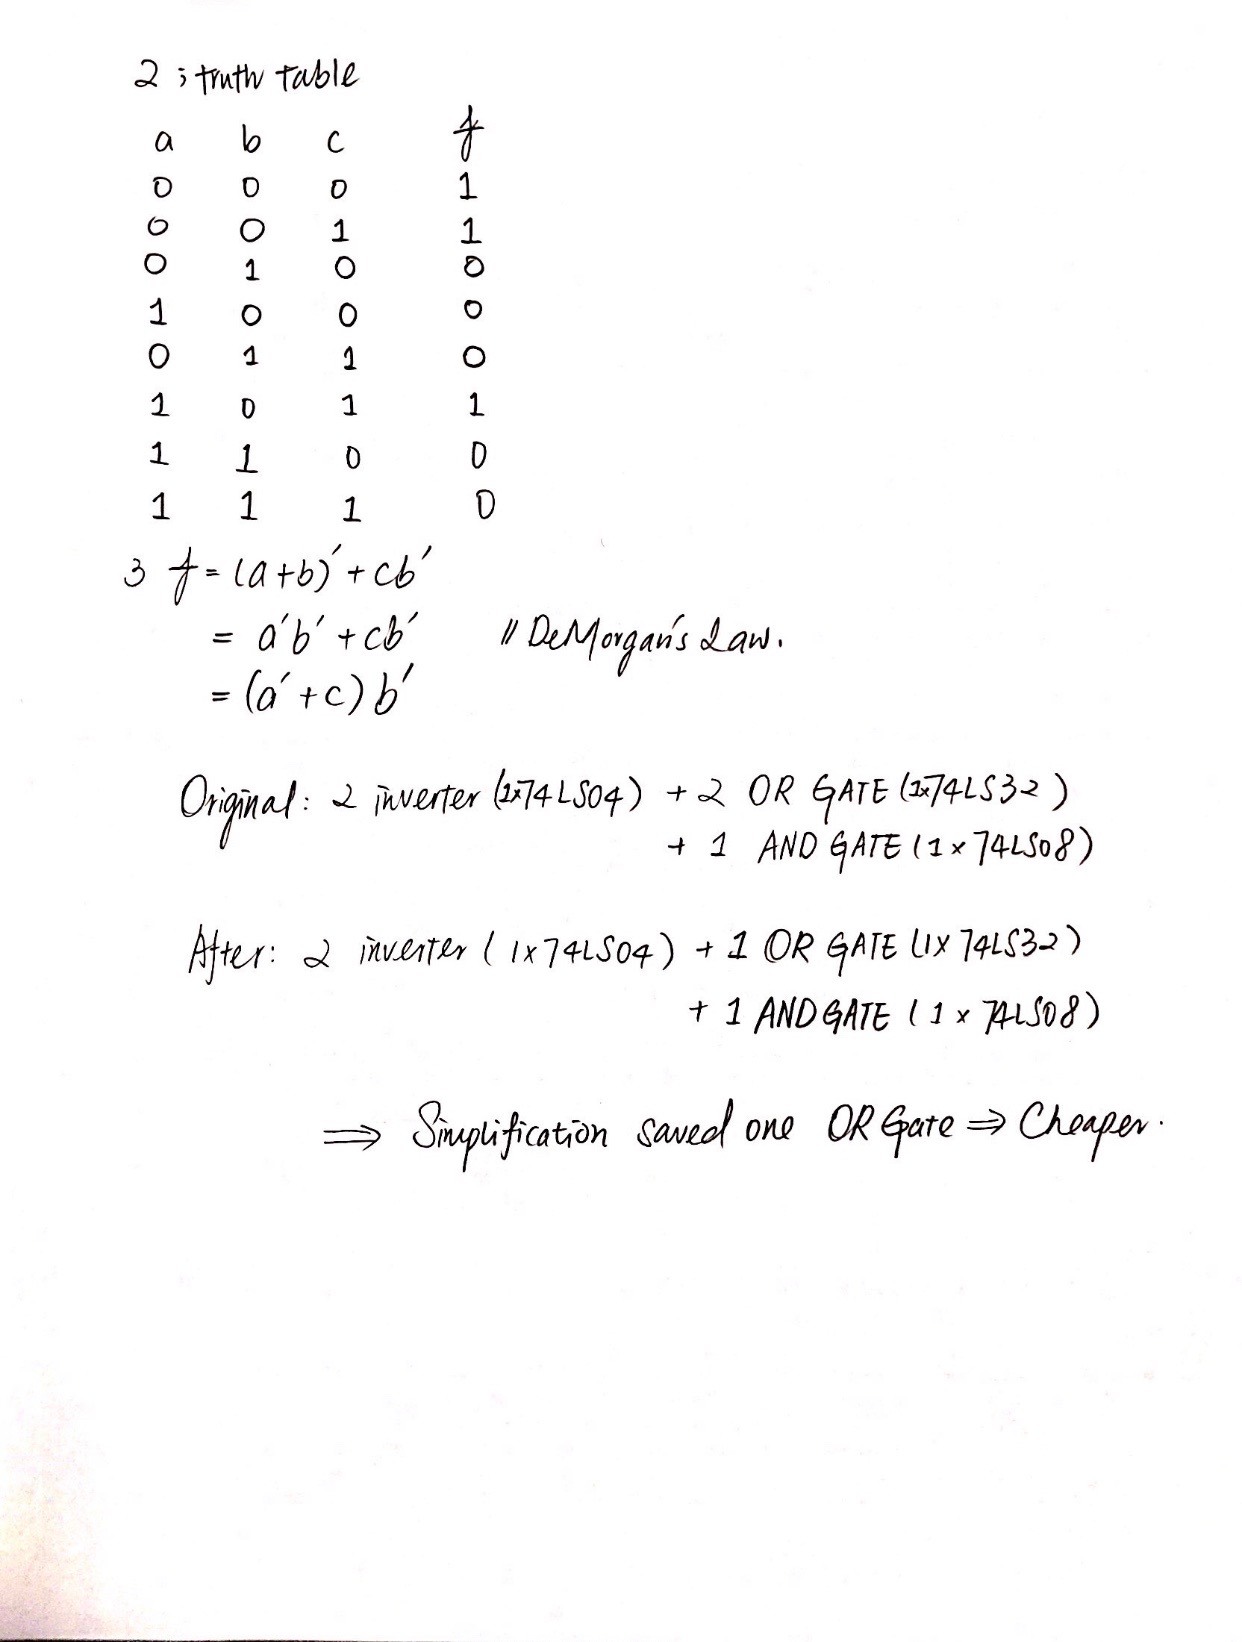 2 ; truth table
a b c f
0 0 0 1
0 0 1 1
0 1 0 0
1 0 0 0
0 1 1 0
1 0 1 1
1 1 0 0
1 1 1 0
3 f = (a+b)′ + cb′
= a′b′ + cb′ // DeMorgan's Law.
= (a′ + c) b′
Original: 2 inverter (1x74LS04) + 2 OR GATE (1x74LS32)
+ 1 AND GATE (1 x 74LS08)
After: 2 inverter (1x74LS04) + 1 OR GATE (1X 74LS32)
+ 1 AND GATE (1 x 74LS08)
⇒ Simplification saved one OR Gate ⇒ Cheaper.